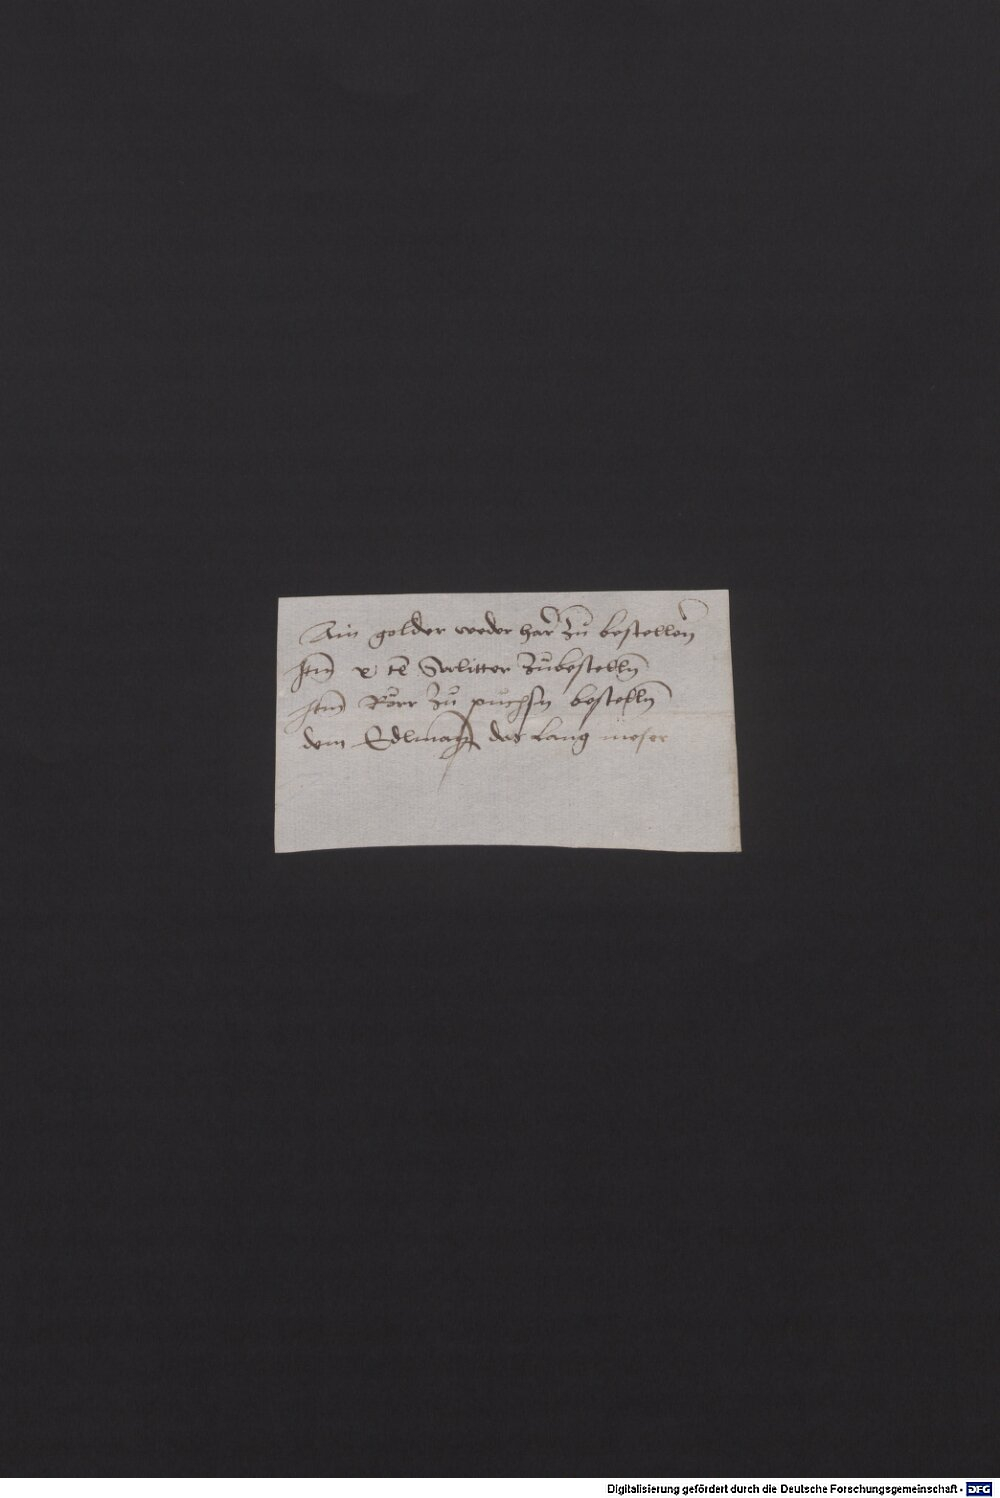 Ain golder weder har zů bestellen
Itm x tē Salitter zůbestelln
Itm Rorr zů půchsn bestelln
dem Edlman das lang meser
Digitalisierung gefördert durch die Deutsche Forschungsgemeinschaft - DFG